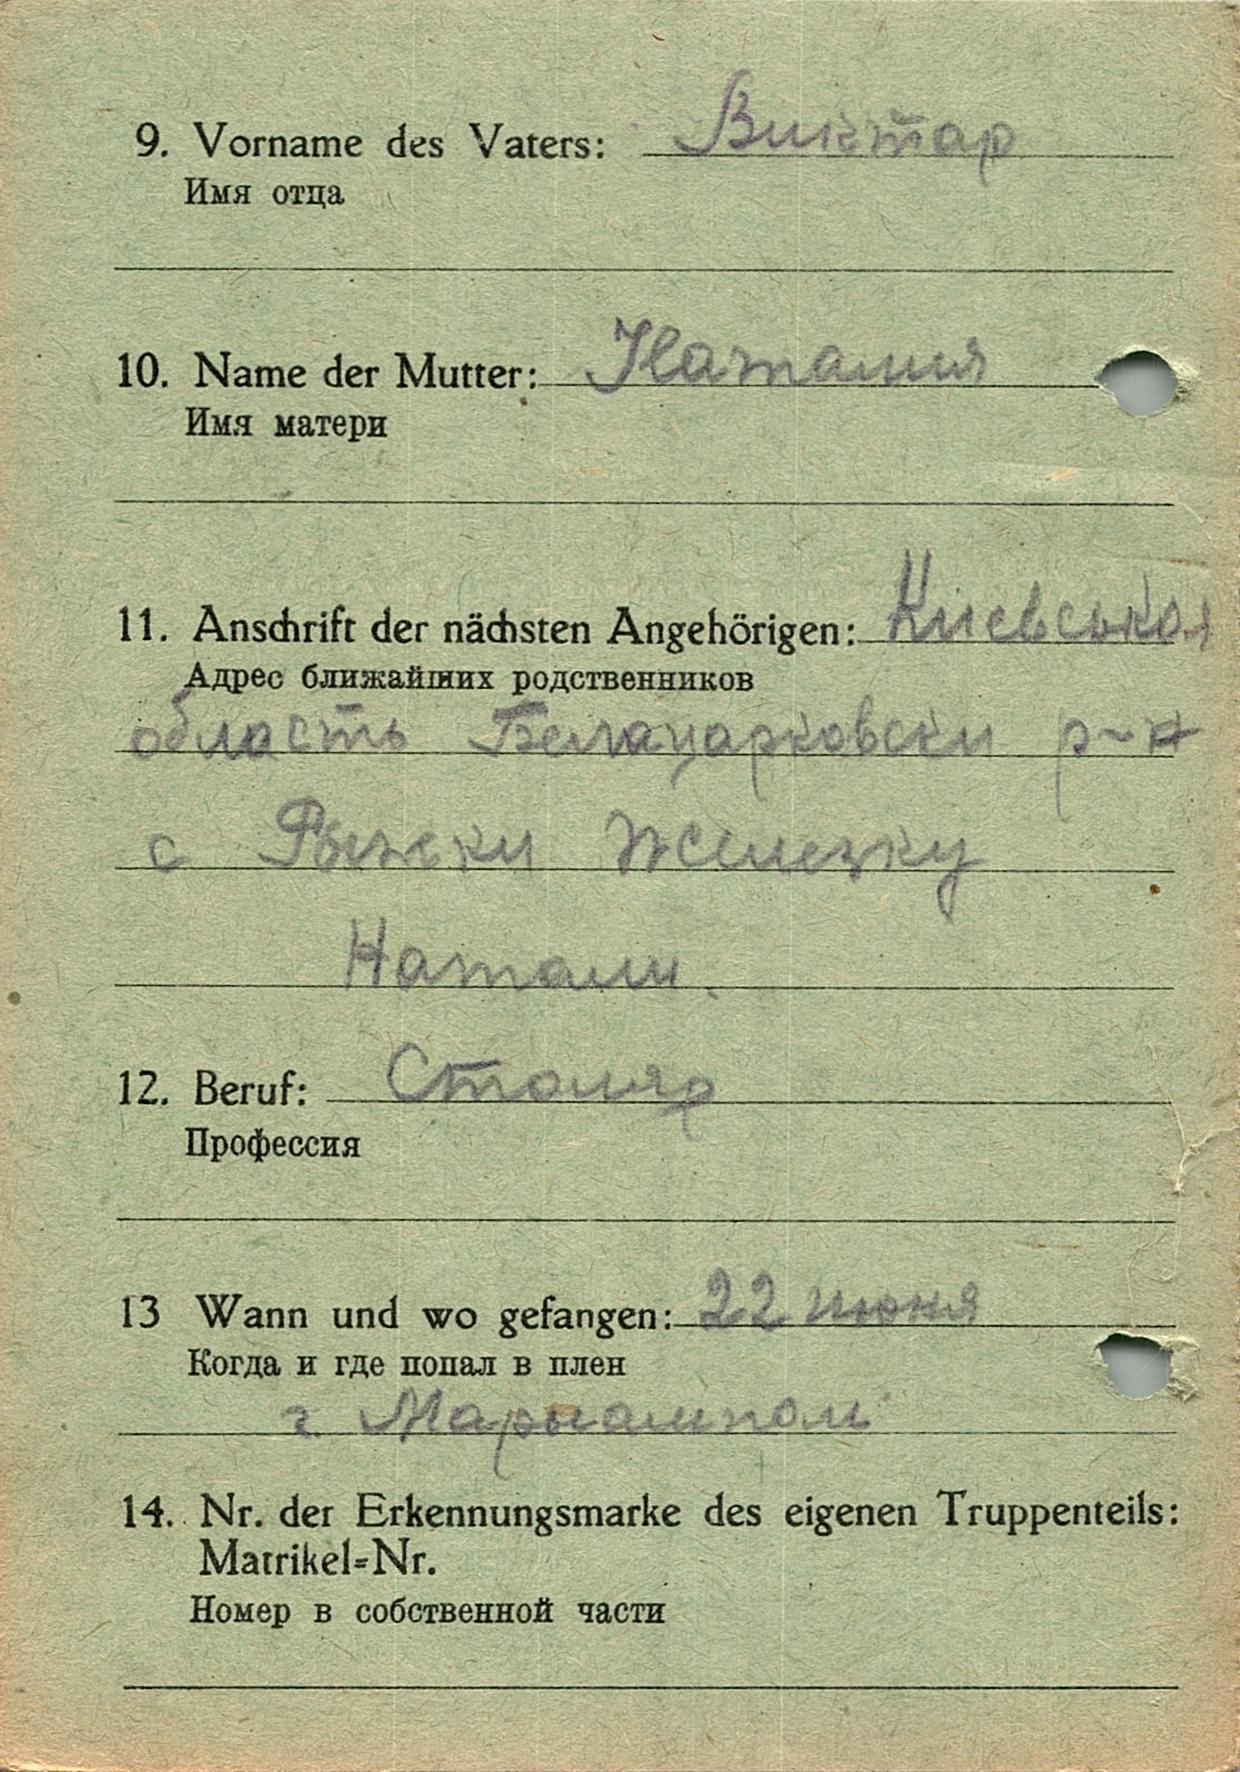 9. Vorname des Vaters: Виктар
Имя отца
10. Name der Mutter: Наталия
Имя матери
11. Anschrift der nächsten Angehörigen: Киевськоя
Адрес ближайших родственников
область Белацарковски р-н
с Железку
Натали.
12. Beruf: Столяр
Профессия
13 Wann und wo gefangen: 22 июня
Когда и где попал в плен
г. Марыамполи
14. Nr. der Erkennungsmarke des eigenen Truppenteils:
Matrikel=Nr.
Номер в собственной части